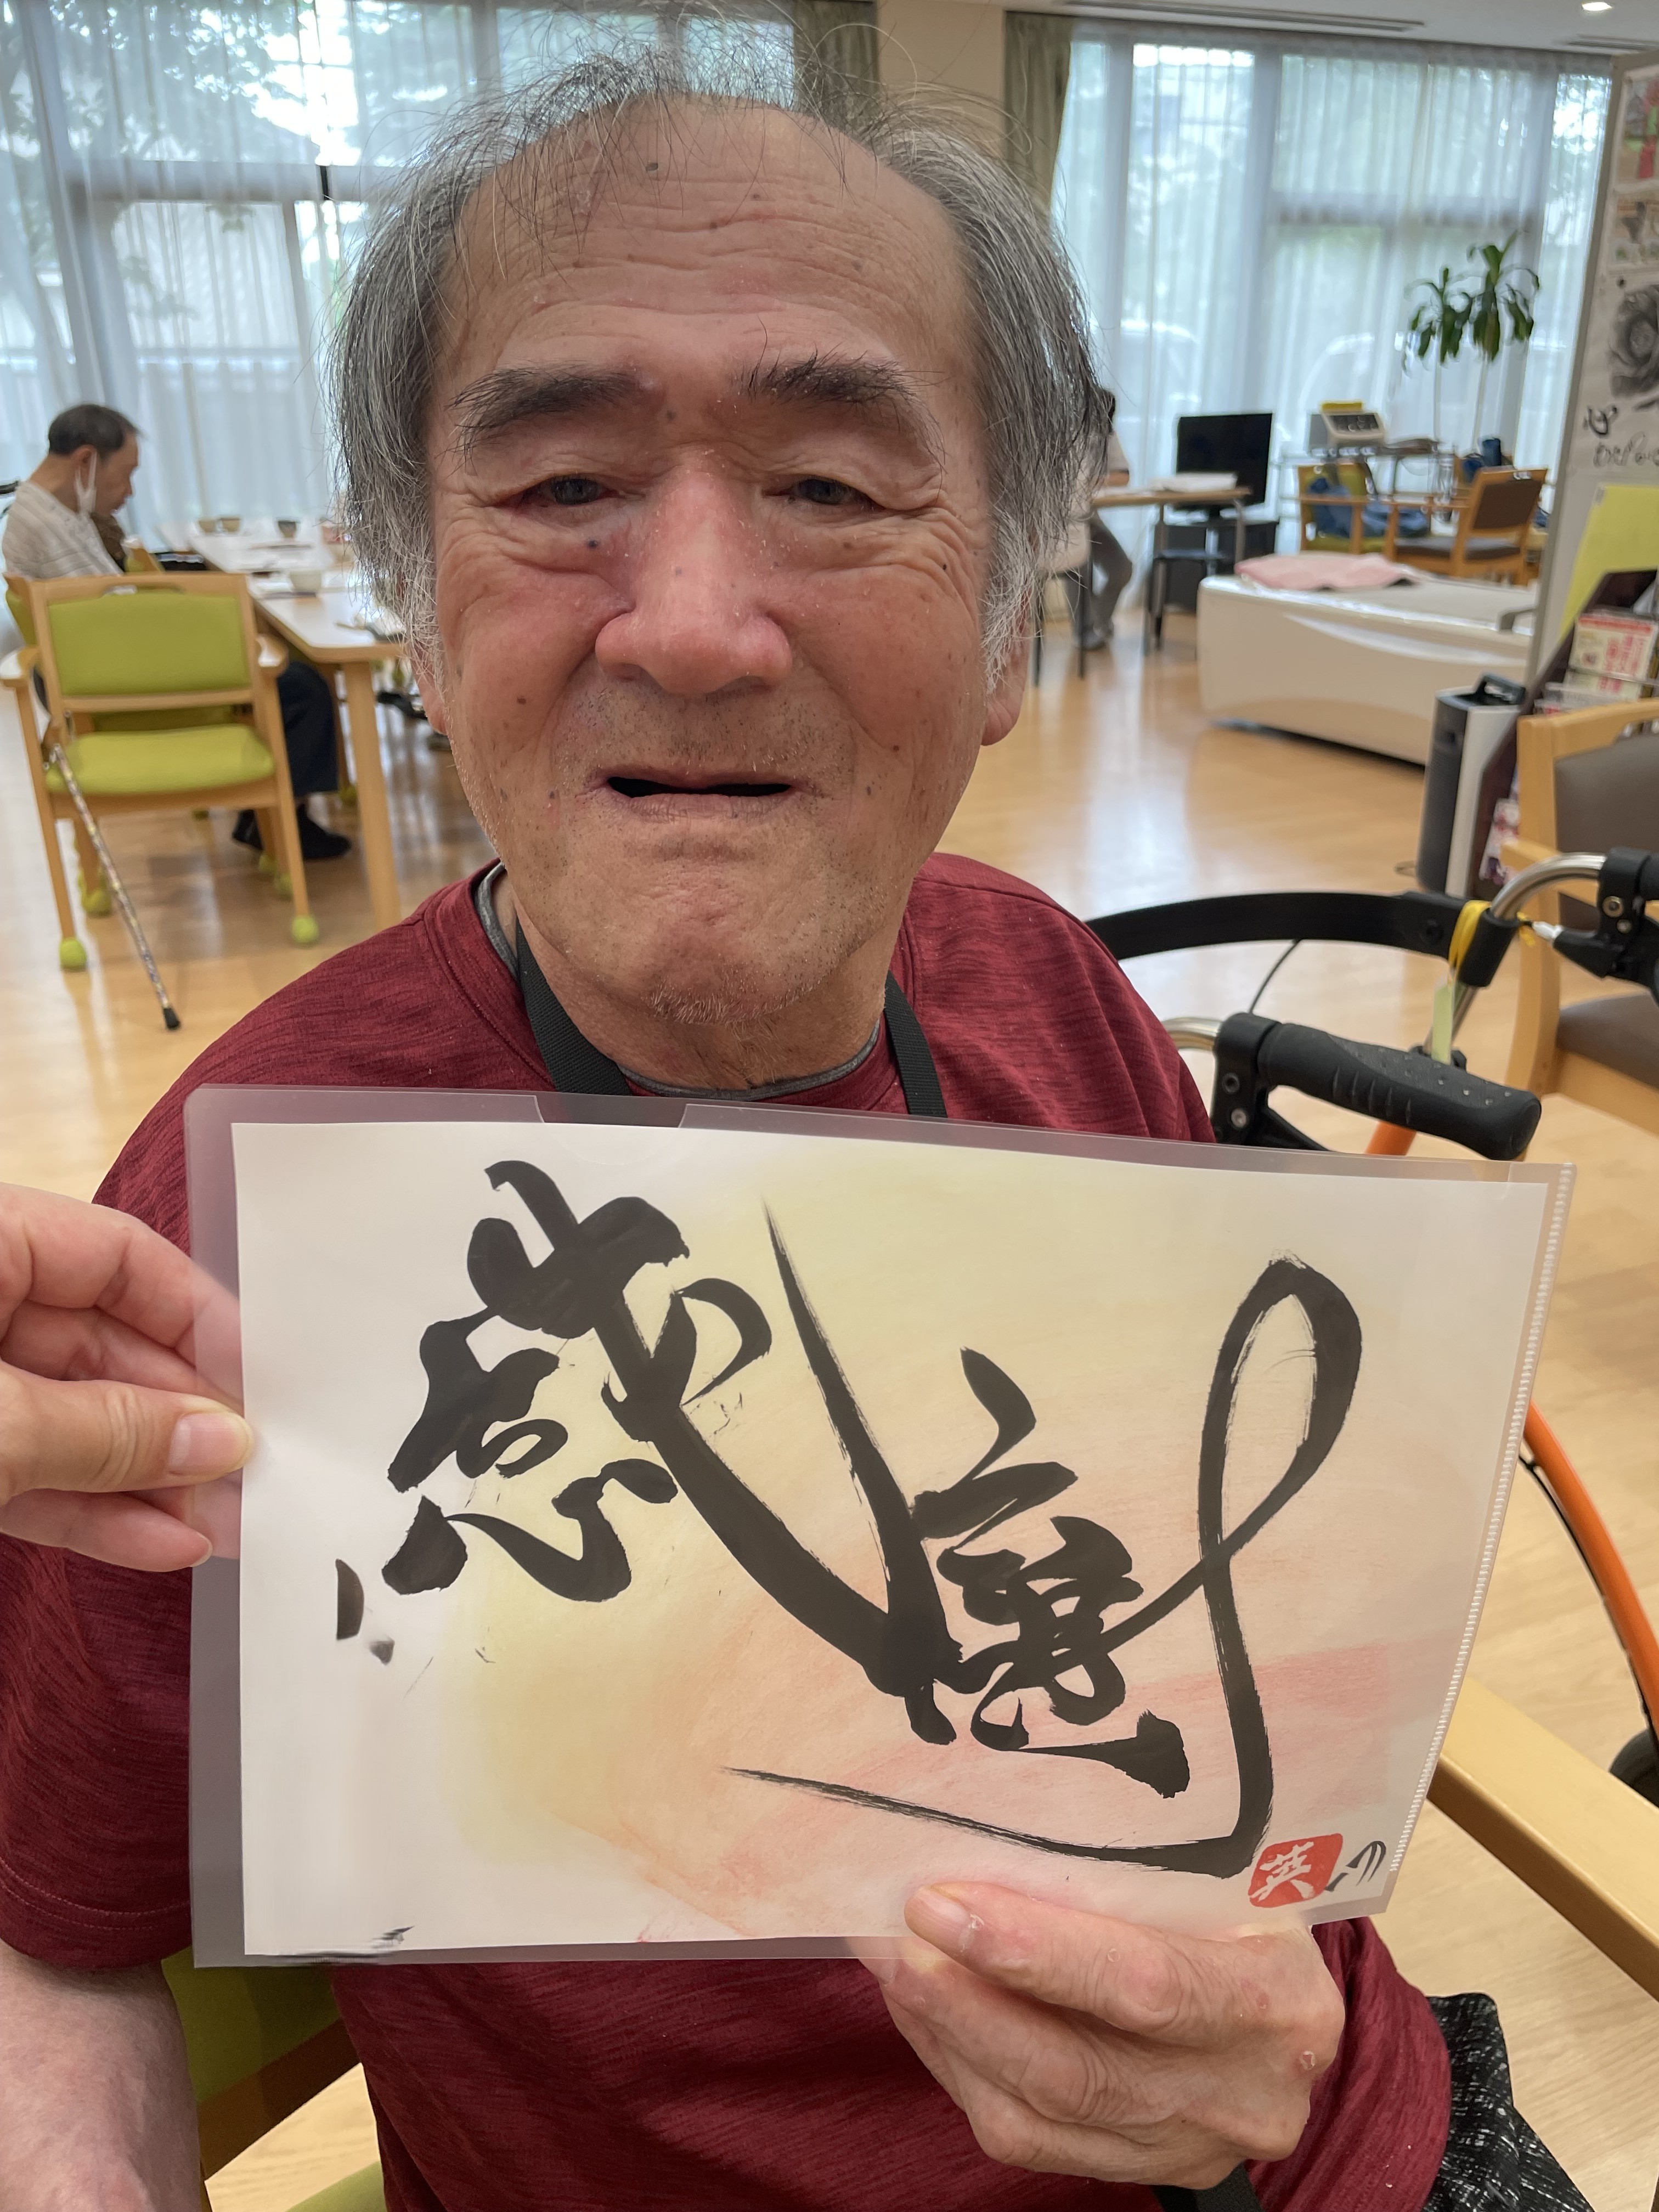 感謝
英